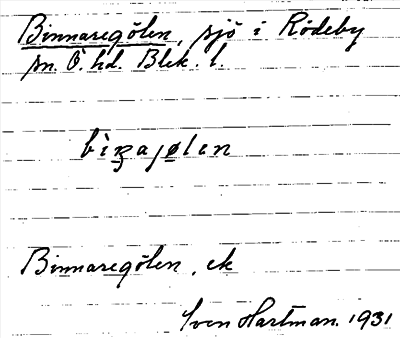 Binnaregölen, sjö i Rödeby
sn. Ö. hd. Blek. l.
Binnaregölen, ek
Sven Hartman. 1931